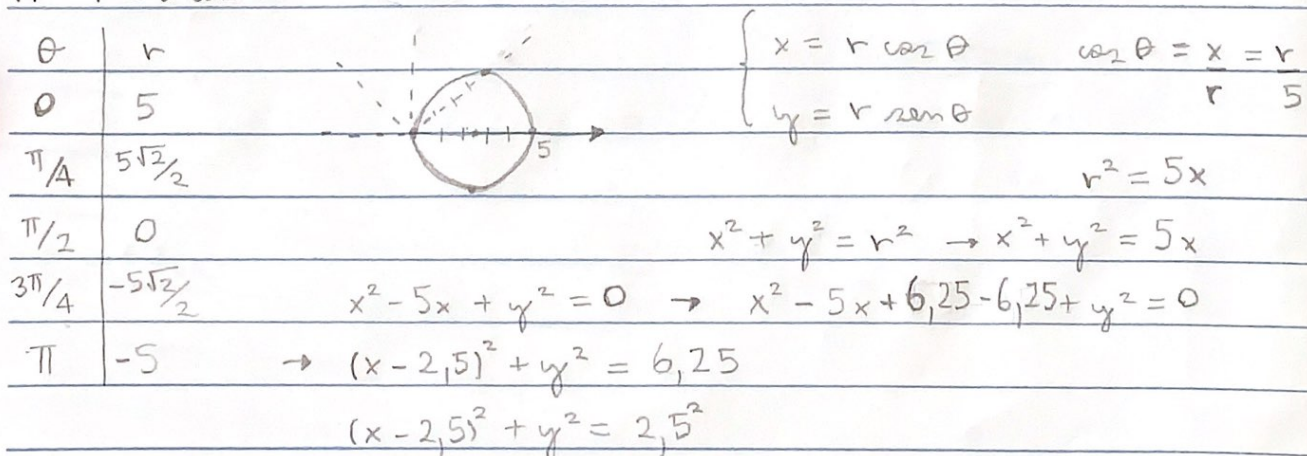 θ r
0 5
π/4 5√2/2
π/2 0
3π/4 -5√2/2
π -5
5
{ x = r cos θ
y = r sen θ
cos θ = x/r = r/5
r² = 5x
x² + y² = r² → x² + y² = 5x
x² - 5x + y² = 0 → x² - 5x + 6,25 - 6,25 + y² = 0
→ (x - 2,5)² + y² = 6,25
(x - 2,5)² + y² = 2,5²